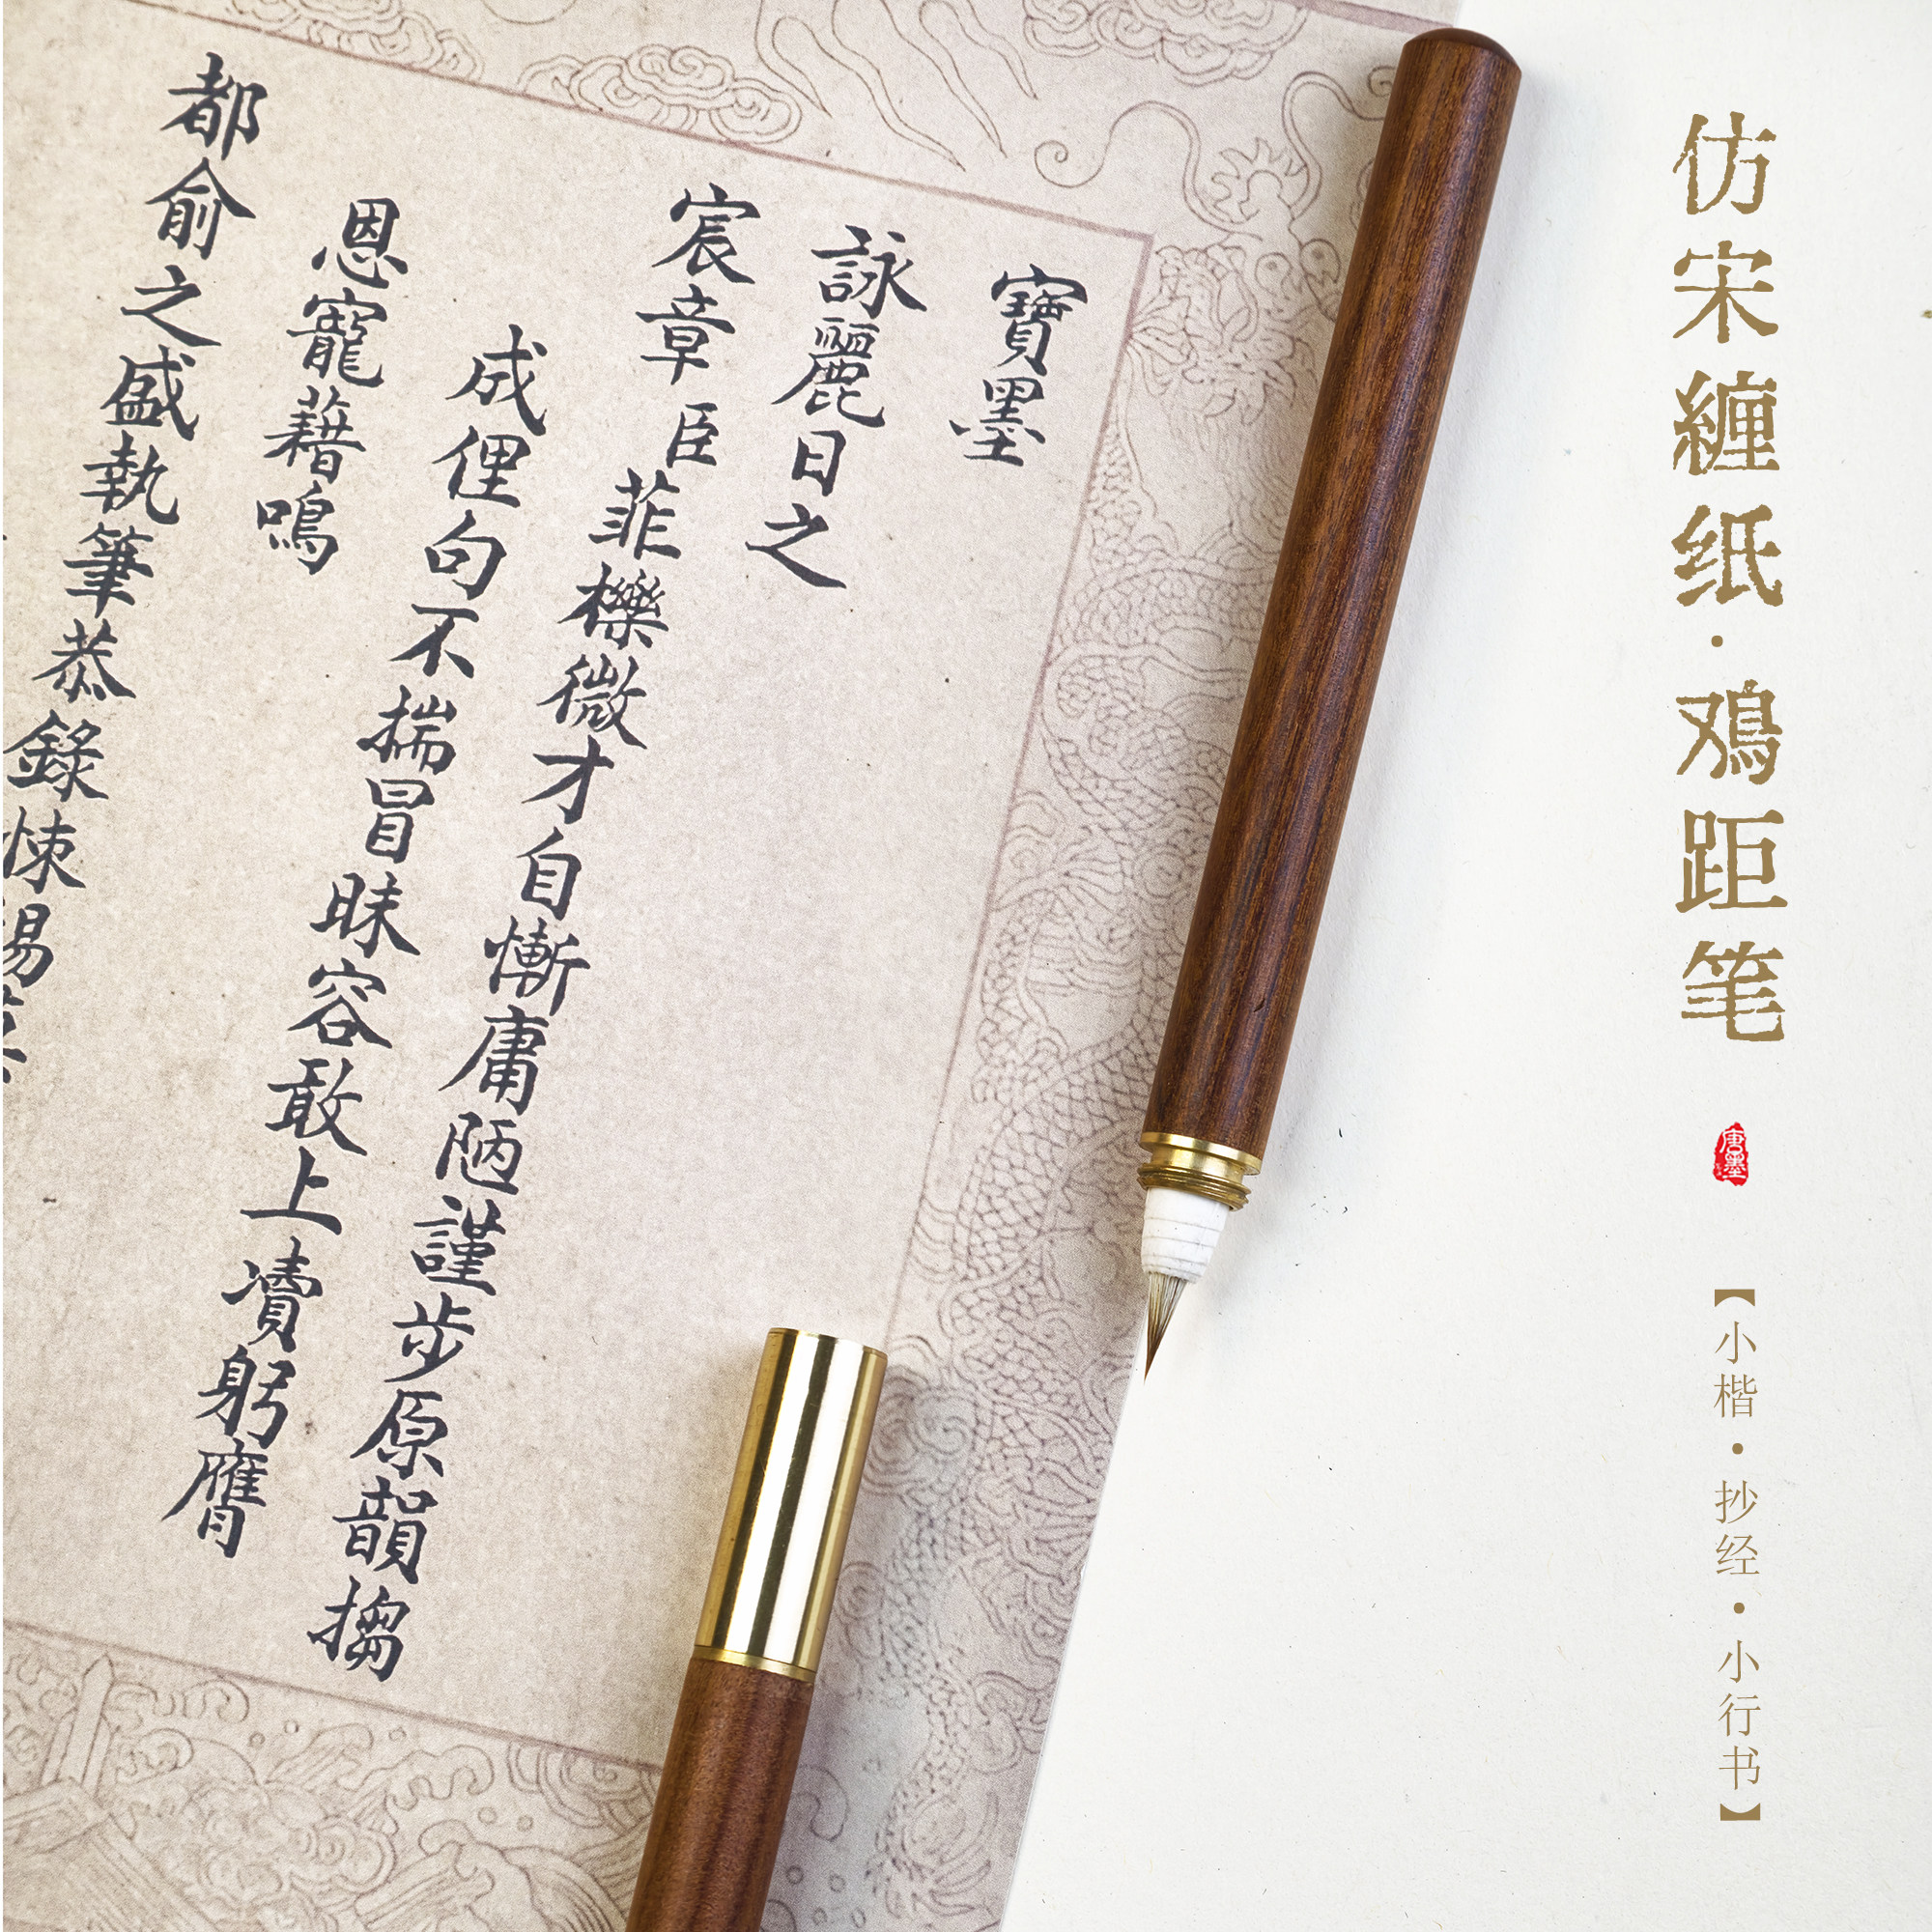 仿宋纒纸·鸡距笔
唐墨
【小楷·抄经·小行书】
寶墨
詠麗日之
宸章臣菲櫟微才自慚庸陋謹步原韻搊
成俚句不揣冒昧容敢上凟躬膺
恩寵藉鳴
都俞之盛執筆恭錄悚